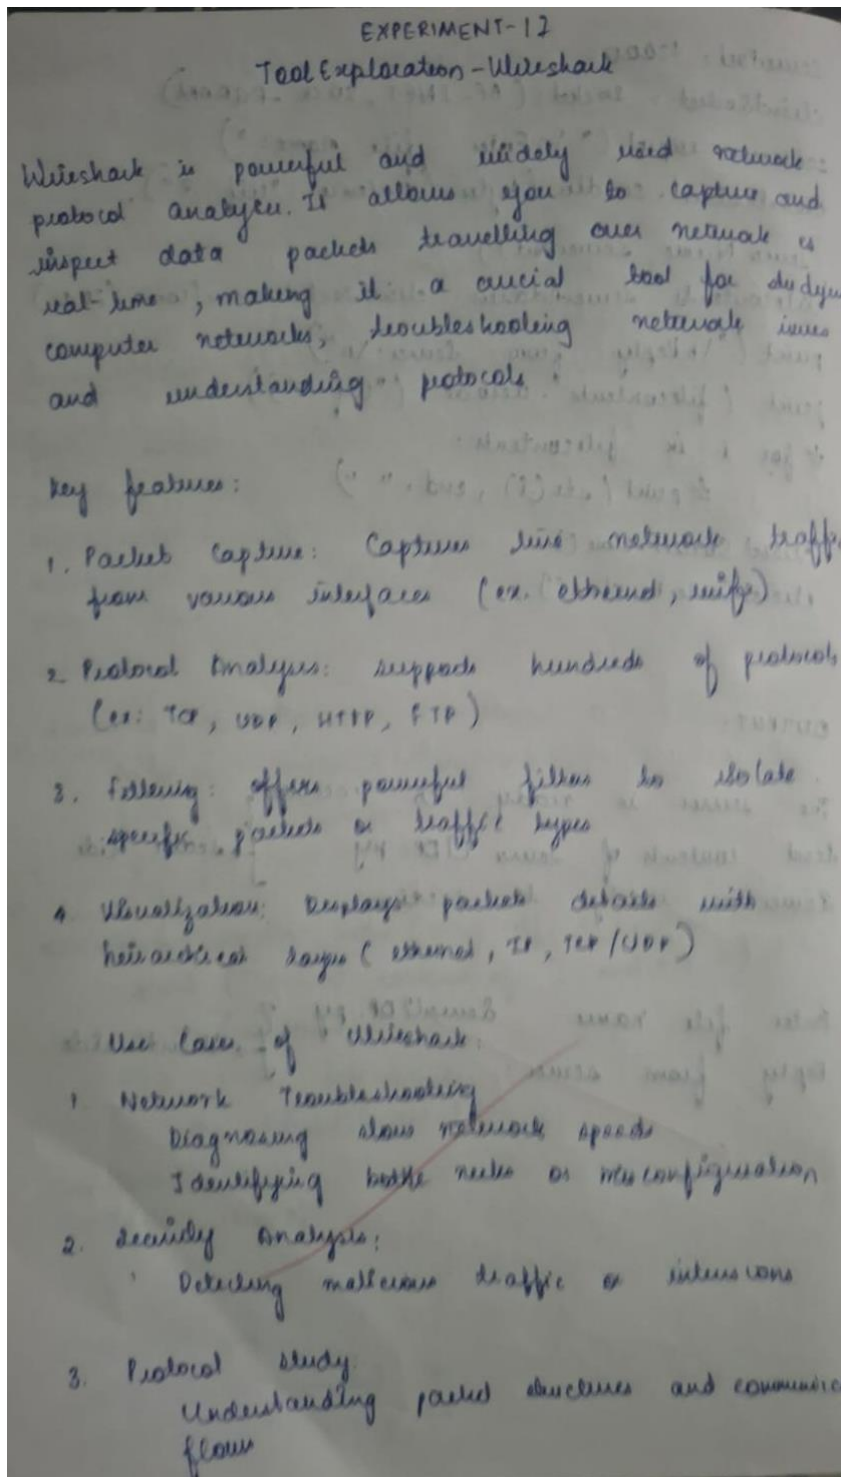 EXPERIMENT-12
Tool Exploration - Wireshark
Wireshark is powerful and widely used network
protocol analyzer. It allows you to capture and
inspect data packets travelling over network is
real-time, making it a crucial tool for
computer networks, troubleshooting network issues
and understanding protocols
Key features:
1. Packet Capture: Captures live network traff
from various interfaces (ex. ethernet, wifi)
2. Protocol Analysis: supports hundreds of protocols
(ex: TCP, UDP, HTTP, FTP)
3. Filtering: offers powerful filters to isolate
specific packets or traffic types
4. Visualization: Displays packets details with
heirarchical layer (ethernet, IP, TCP/UDP)
Use Cases of Wireshark:
1. Network Troubleshooting
Diagnosing slow network speeds
Identifying bottle necks or misconfiguration
2. Security Analysis:
Detecting malicious traffic or intrusions
3. Protocol study:
Understanding packet structures and communica
flows